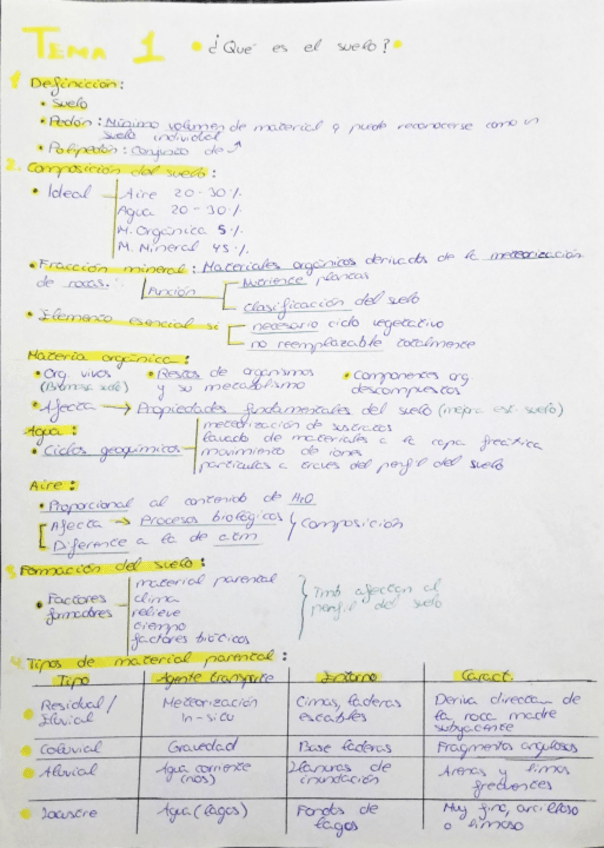 TEMA 1 • ¿Qué es el suelo? •
1 Definición:
• Suelo
• Pedón: Mínimo volumen de material q puede reconocerse como un
suelo individual
• Polipedón: Conjunto de
2. Composición del suelo:
• Ideal
Aire 20-30%
Agua 20-30%
M. Orgánica 5%
M. Mineral 45%
• Fracción mineral: Materiales orgánicos derivados de la meteorización
de rocas. Función
Nutriente plantas
clasificación del suelo
• Elemento esencial si
necesario ciclo vegetativo
no reemplazable totalmente
Materia orgánica:
• Org. vivos • Restos de organismos • Componentes org.
(Biomasa suelo) y su metabolismo descompuestos
• Afecta → Propiedades fundamentales del suelo (mejora est. suelo)
Agua:
• Ciclos geoquímicos
meteorización de sustratos
lavado de materiales a la capa freática
movimiento de iones
partículas a través del perfil del suelo
Aire:
• Proporcional al contenido de H2O
Afecta → Procesos biológicos
Diferente a la de atm
Composición
3 Formación del suelo:
• Factores formadores
material parental
clima
relieve
tiempo
factores bióticos
Tmb afectan al
perfil del suelo
4. Tipos de material parental:
Tipo Agente transporte Entorno Caract.
• Residual/ Meteorización Cimas, laderas Deriva direct. de
Eluvial In-situ estables la roca madre
subyacente
• Coluvial Gravedad Base laderas Fragmentos angulosos
• Aluvial Agua corriente Llanuras de Arenas y limos
(ríos) inundación frecuentes
• Lacustre Agua (lagos) Fondos de Muy fino, arcilloso
lagos o limoso